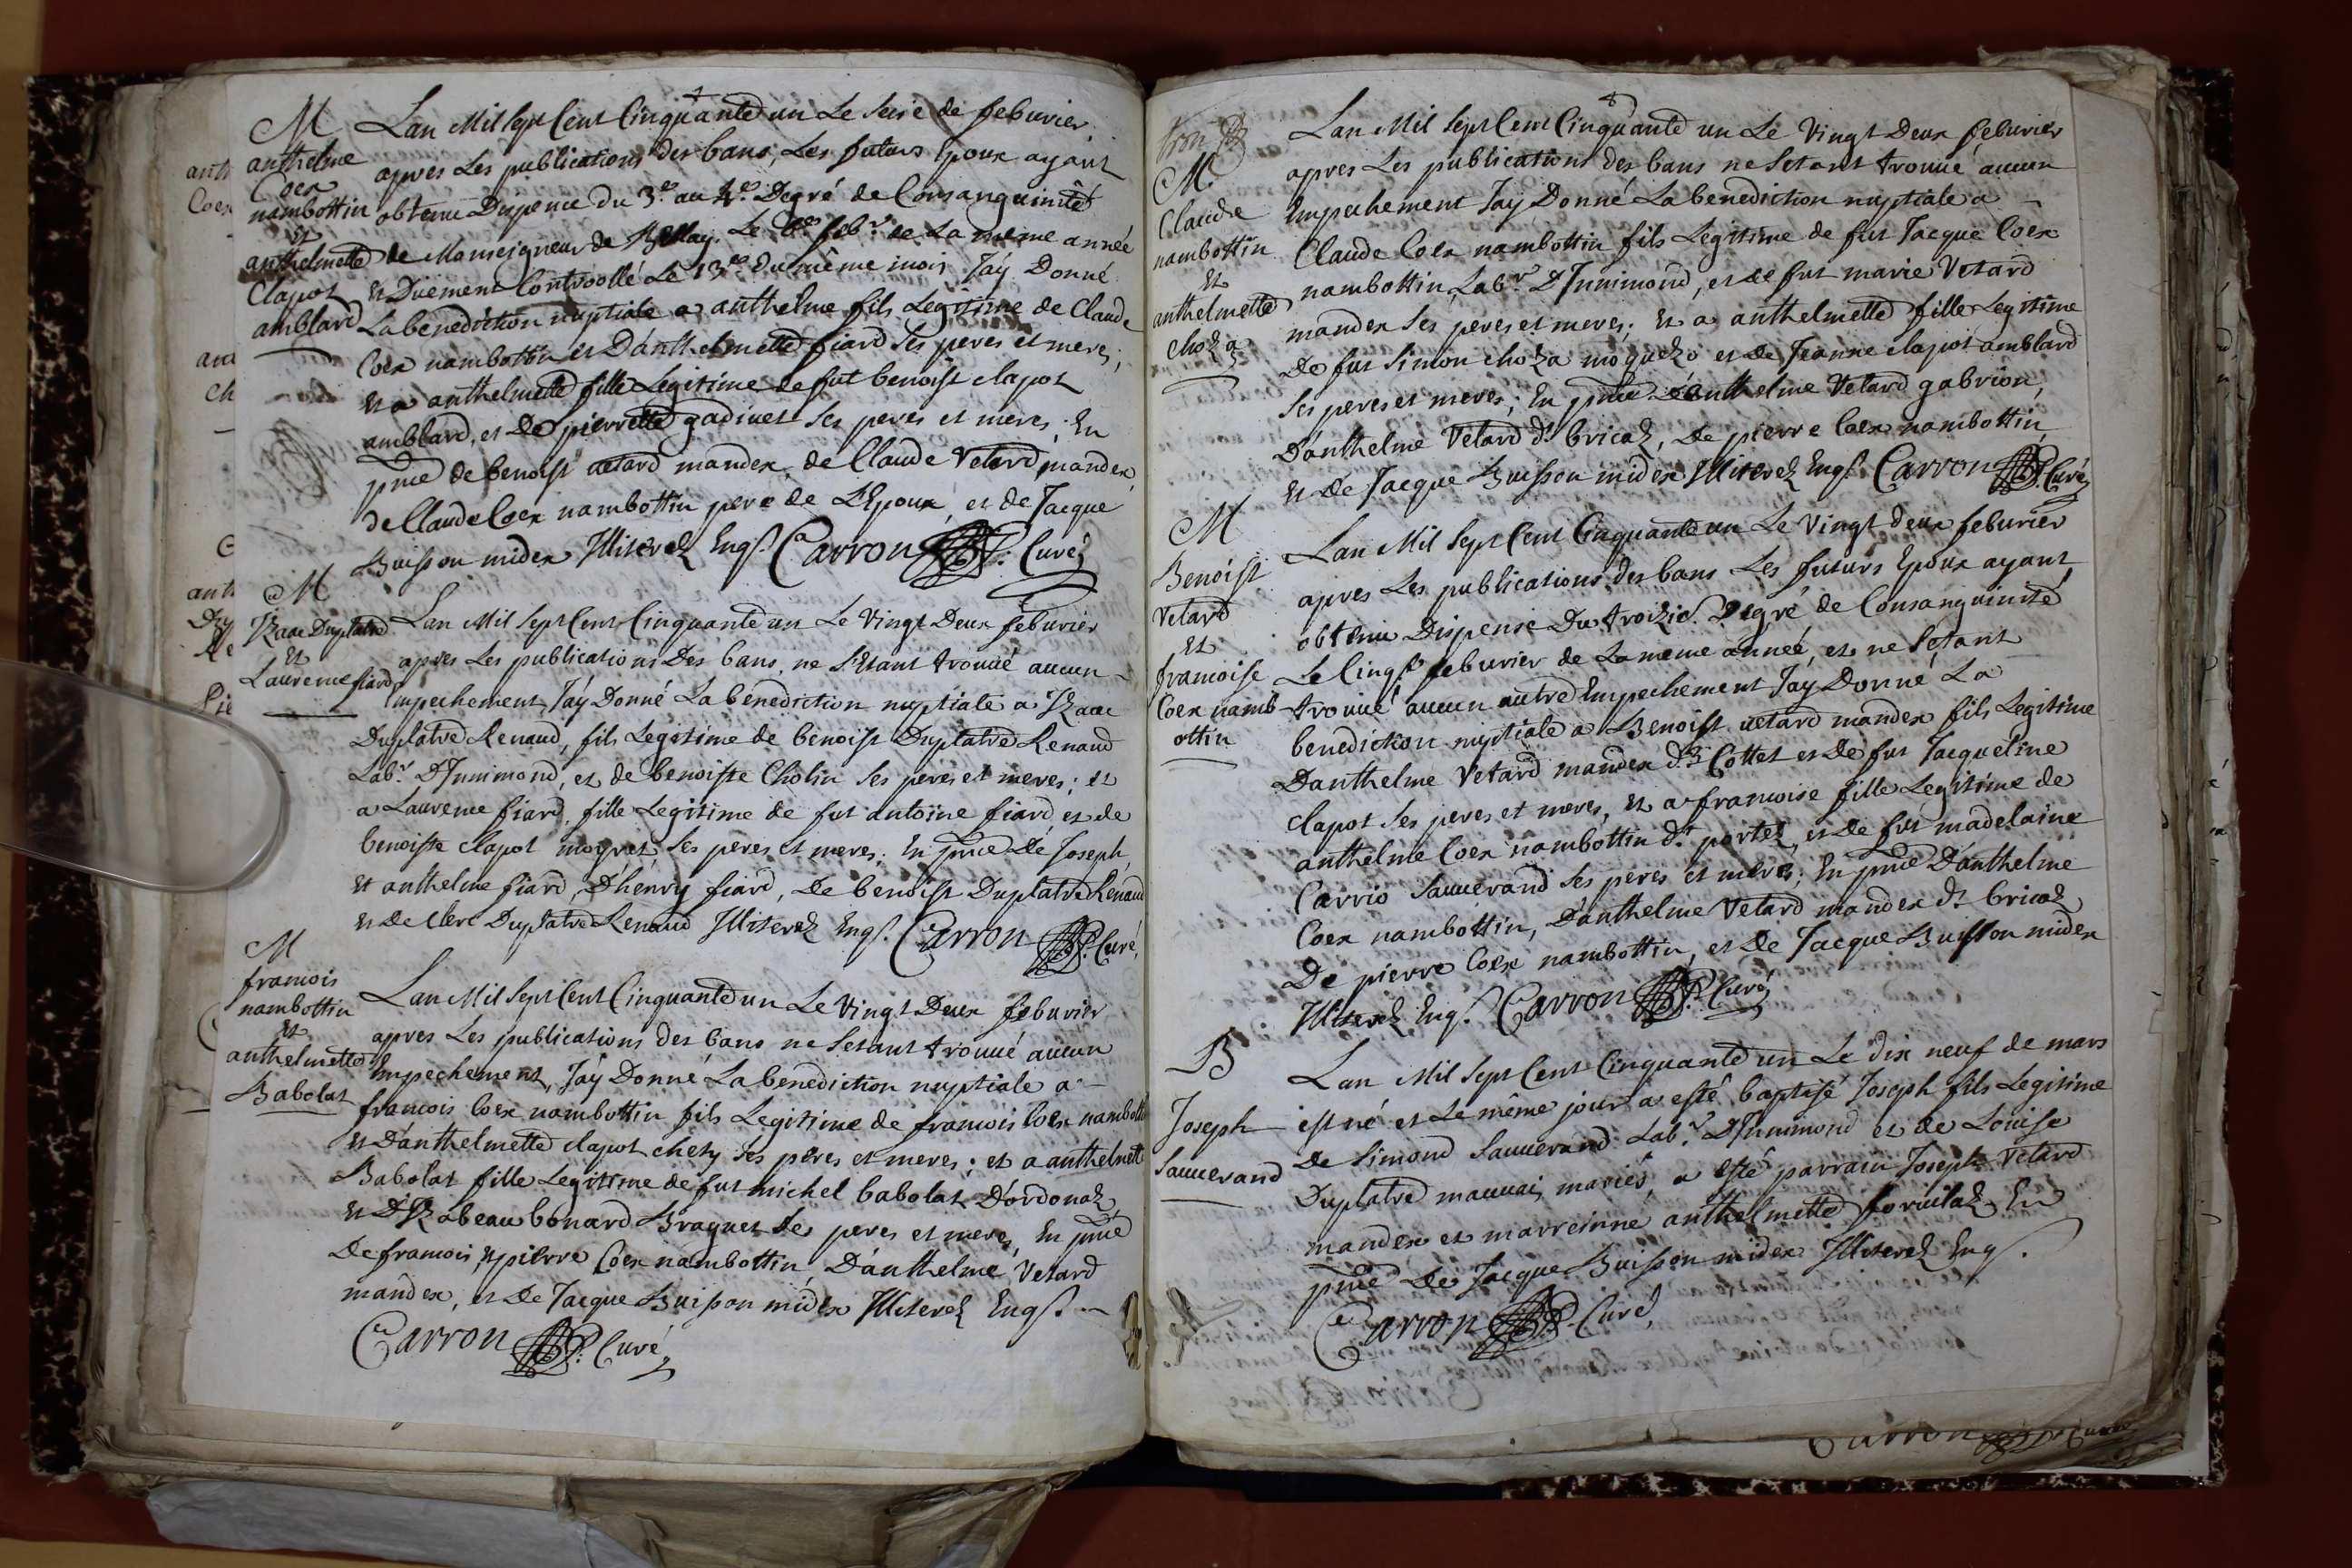 M
anthelme
Coex
nambottin
et
anthelmette
Clapot
amblard
Lan Mil Sept Cent Cinquante un Le Seise de feburier
apres Les publications des bans, Les futurs Epoux ayant
obtenu Dispence du 3.e au 4.e Degré de Consanguinité
de Monseigneur de Bellay. Le feb.r de La meme année
et Duement Controollé Le 13.e du même mois Jay Donné
La benediction nuptiale a anthelme fils Legitime de Claude
Coex nambottin et D'anthelmette fiard Ses peres et meres;
et a anthelmette fille Legitime de fut benoist clapot
amblard, et De pierrette gadinet Ses peres et meres; En
pnce de benoist uetard mandex, de Claude Vetard mandex,
de Claude Coex nambottin pere de L'Epoux, et de Jacque
Buisson midex Illiterez Enqs. Carron P. Curé
M
Izaac Duplatre
et
Laurence fiard
Lan Mil Sept Cent Cinquante un Le Vingt Deux feburier
apres Les publications Des bans, ne S'Etant trouué aucun
Empechement, Jay Donné La benediction nuptiale a Izaac
Duplatre Renaud, fils Legitime de benoist Duplatre Renaud
Lab.r D'Innimond, et de benoiste Cholin Ses peres et meres; et
a Laurence fiard, fille Legitime de fut antoine fiard, et de
benoiste clapot moynet, Ses peres et meres; En pnce de Joseph,
et anthelme fiard, D'henry fiard, De benoist Duplatre Renaud
et de Clerc Duplatre Renaud Illiterez Enqs. Carron P. Curé,
M
francois
nambottin
et
anthelmette
Babolat
Lan Mil Sept Cent Cinquante un Le Vingt Deux feburier
apres Les publications des bans ne Setant trouué aucun
Empechement, Jay Donné La benediction nuptiale a
francois Coex nambottin fils Legitime de francois Coex nambotti
et D'anthelmette clapot chety Ses peres et meres; et a anthelmett
Babolat fille Legitime de fut michel babolat D'ordonaz
et D'Izabeau bonard Braquet Se peres et meres, En pnce
De francois, et pierre Coex nambottin, D'anthelme Vetard
mandex, et De Jacque Buisson midex Illiterez Enqs.
Carron P. Curé
M.
Claude
nambottin
Et
anthelmette
choza
Lan Mil Sept Cent Cinquante un Le Vingt Deux feburier
apres Les publications des bans ne Setant trouué aucun
Empechement Jay Donné La benediction nuptiale a
Claude Coex nambottin fils Legitime de fut Jacque Coex
nambottin, Lab.r D'Innimond, et de fut marie Vetard
mandex Ses peres et meres; Et a anthelmette fille Legitime
De fut Simon choza moquezo et de Jeanne clapot amblard
Ses peres et meres; En pnce D'anthelme Vetard gabrion,
D'anthelme Vetard dt bricoz, De pierre Coex nambottin,
Et De Jacque Buisson midex Illiterez Enqs. Carron P. Curé
M
Benoist
Vetard
Et
francoise
Coex namb-
ottin
Lan Mil Sept Cent Cinquante un Le Vingt deux feburier
apres Les publications des bans Les futurs Epoux ayant
obtenu Dispense Du troizie. Degré de Consanguinité
Le Cinqt feburier de La meme année, et ne Setant
trouué aucun autre Empechement Jay Donné La
benediction nuptiale a Benoist uetard mandex fils Legitime
D'anthelme Vetard mandex dt Cottet et De fut Jacqueline
clapot Ses peres et meres, Et a francoise fille Legitime de
anthelme Coex nambottin dt portez, et De fut madelaine
Carrio Sauuerand Ses peres et meres; En pnce D'anthelme
Coex nambottin, D'anthelme Vetard mandex dt bricoz,
De pierre Coex nambottin, et De Jacque Buisson midex
Illiterez Enqs. Carron P. Curé
B
Joseph
Sauuerand
Lan Mil Sept Cent Cinquante un Le dix neuf de mars
est né et Le même jour a esté baptisé Joseph fils Legitime
De Simond Sauuerand Lab.r D'Innimond et de Louise
Duplatre mauuai mariés, a esté parrain Joseph Vetard
mandex et marreinne anthelmette En
pnce De Jacque Buisson midex Illiterez Enqs.
Carron P. Curé,